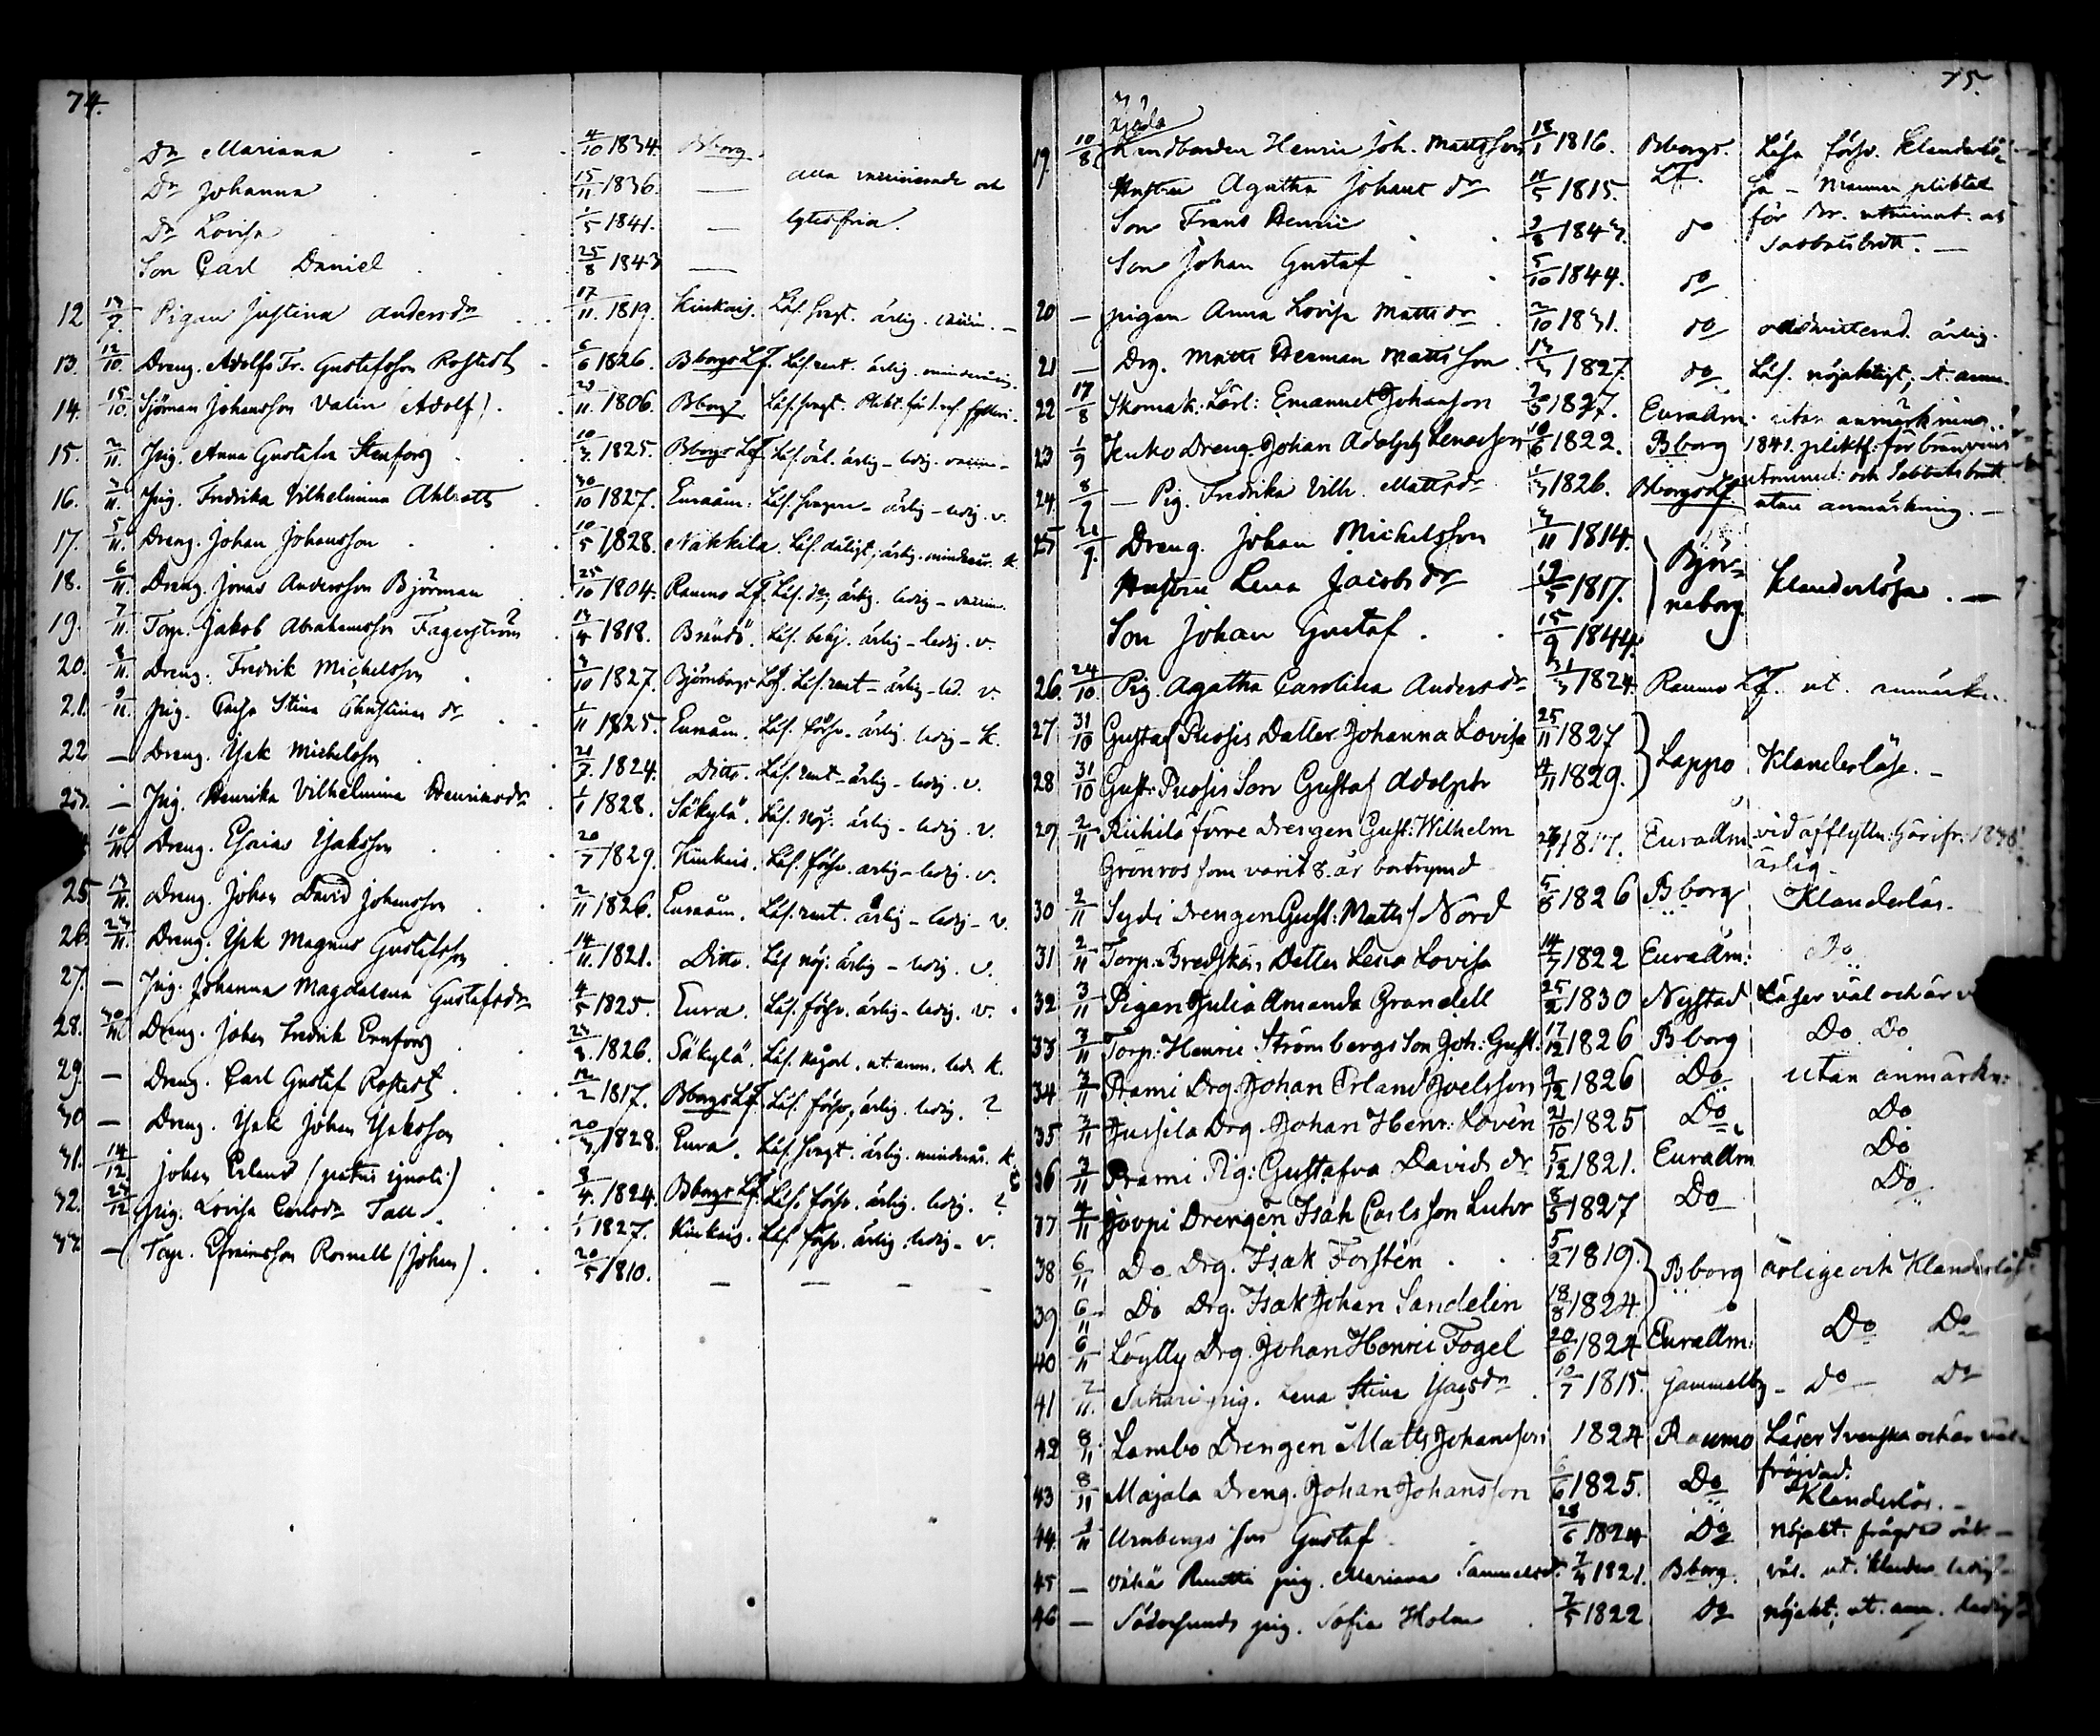 74.
Dr Mariana 4/10 1834. Bborg.
Dr Johanna 15/11 1836. — alla vaccinerade och
Dr Lovisa 1/5 1841. — lytesfria.
Son Carl Daniel 25/8 1843 —
12 13/7 Pigan Justina Andersdr 17/11 1819. Kiukais. Läs. svagt. ärlig. vaccin. —
13. 12/10 Dreng. Adolf Fr. Gustafsson Rostedt 6/6 1826. BborgsLf. Läs. rent. ärlig. minderårig.
14. 15/10 Sjöman Johansson Valin (Adolf). 23/11 1806. Bborg. Läs. svagt. Plikt. för fylleri.
15. 2/11 Pig. Anna Gustafva Stenfors 10/3 1825. Bborgs Lf. Läs. väl. ärlig — ledig.
16. 3/11 Pig. Fredrika Vilhelmina Ahlroth 30/10 1827. Euraåm. Läs. ärlig — ledig. v.
17. 5/11 Dreng. Johan Johansson 10/5 1828. Nakkila. Läs. dåligt, ärlig. minderår. k.
18. 6/11 Dreng. Jonas Andersson Björman 25/10 1804. Raumo Lf. Läs. do, ärlig. ledig — vaccin.
19. 7/11 Torp. Jakob Abrahamsson Fagerström 13/4 1818. Brändö. Läs. beh. ärlig — ledig. v.
20. 8/11 Dreng. Fredrik Michelsson 3/10 1827. Björneborgs Lf. Läs. rent — ärlig — led. v.
21. 9/11 Pig. Caisa Stina Christinas dr 1/11 1825. Euraåm. Läs. försv. ärlig. ledig — k.
22 — Dreng. Isak Michelsson 21/7 1824. Ditto. Läs. rent — ärlig — ledig. v.
23. — Pig. Henrika Vilhelmina Henriksdr 1/1 1828. Säkylä. Läs. nöj. ärlig — ledig. v.
10/11 Dreng. Esaias Isaksson 20/7 1829. Kiukais. Läs. försv. ärlig — ledig. v.
25. 13/11 Dreng. Johan David Johansson 2/11 1826. Euraåm. Läs. rent. ärlig — ledig — v.
26. 23/11 Dreng. Isak Magnus Gustafsson 14/11 1821. Ditto. Läs nöj. ärlig — ledig. v.
27. — Pig. Johanna Magdalena Gustafsdr 4/5 1825. Eura. Läs. försv. ärlig — ledig. v.
28. 30/11 Dreng. Johan Fredrik Ernfors 23/3 1826. Säkylä. Läs. något. ut. anm. led. k.
29. — Dreng. Carl Gustaf Rostedt 12/2 1817. Bborgs Lf. Läs. försv, ärlig. ledig. ?
30 — Dreng. Isak Johan Isaksson 20/3 1828. Eura. Läs. svagt. ärlig. minderår. k.
31. 14/12 Johan Erland (patris ignoti) 8/4 1824. Bborgs Lf. Läs. försv. ärlig. ledig. ?
32. 23/12 Pig. Lovisa Carlsdr Tall 1/1 1827. Kiukais. Läs. försv. ärlig. ledig — v.
33. — Torp. Efraimsson Rosnell (Johan) 20/5 1810. — — — —
75.
19. 10/8 Landbonden Henric Joh. Mattsson 18/1 1816. Bborgs. Läsa försv. klanderlö-
Hustru Agatha Johans dr 11/5 1815. Lf. sa — Mannen pliktat
Son Frans Henric 3/8 1843. do för Br. utminut. och
Son Johan Gustaf 5/10 1844. do Sabbatsbrott. —
20 — pigan Anna Lovisa Matts dr 2/10 1831. do oadmitterad. ärlig.
21 — Drg. Matts Herman Mattsson 13/3 1827. do Läs. nöjaktigt, ut. anm.
22 17/8 Skomak: Lärl: Emanuel Johansson 2/5 1827. Euraåm. utan anmärkning.
23 1/9 Jenko Dreng. Johan Adolph 10/6 1822. Bborg 1841. pliktf: för bränvins
24 8/9 — Pig. Fredrika Vilh. Mattsdr 1/3 1826. BborgsLf utan anmärkning. —
25 21/9 Dreng. Johan Michelsson 3/11 1814. Björ-
Hustru Lena Jacobs dr 19/5 1817. neborg Klanderlösa. —
Son Johan Gustaf 15/9 1844.
26. 24/10 Pig. Agatha Carolina Andersdr 31/3 1824. Raumo Lf. ut. anmärkn.
27 31/10 Gustaf Puosis Dotter Johanna Lovisa 25/11 1827 Lappo Klanderlöse. —
28 31/10 Gust: Puosis Son Gustaf Adolph 4/11 1829.
29 2/11 förre Drengen Gust: Wilhelm 1817. Euraåm vid afflyttn: härifr: 1838
Grönros som varit 8. år bortrymd ärlig.
30 2/11 Seydi Drengen Gust: Matts: Nord 5/8 1826 Bborg Klanderlös.
31 2/11 Torp. Bredskärs Dotter Lena Lovisa 14/7 1822 Euraåm: Do
32 3/11 Pigan Julia Amanda Grandell 25/2 1830 Nystad Läser väl och är
33 3/11 Torp: Henric Strömbergs Son Joh: Gust. 17/12 1826 Bborg Do Do
34 3/11 Prami Drg. Johan Erland Joelsson 9/12 1826 Do utan anmärkn:
35 3/11 Jussila Drg. Johan Henr: Lovén 21/10 1825 Do Do
36 3/11 Prami Pig: Gustafva Davids dr 5/12 1821. Euraåm Do
37 4/11 Joopi Drengen Isak Carlsson Luhr 8/5 1827 Do Do
38 6/11 Do Drg. Isak Forstén 5/2 1819. Bborg ärlige och Klanderlös
39 6/11 Do Drg. Isak Johan Sandelin 18/8 1824
40 6/11 Löytty Drg. Johan Henric Fogel 20/6 1824 Euraåm: Do Do
41 7/11 pig. Lena Stina Isacsdr 10/7 1815. Gammelby — do — Do
42 8/11 Lambo Drengen Matts Johansson 1824 Raumo Läser Svenska och är väl-
fräjdad.
43 8/11 Majala Dreng. Johan Johansson 6/6 1825. Do Klanderlös. —
44. 9/11 son Gustaf 28/6 1824 Do nöjakt. fräjdad
45 — Vähä pig. Mariana Samuelsdr. 7/4 1821. Bborg. väl. ut. klander ledig
46 — Södersunds pig. Sofia Holm 7/5 1822 Do nöjakt, ut. anm. ledig